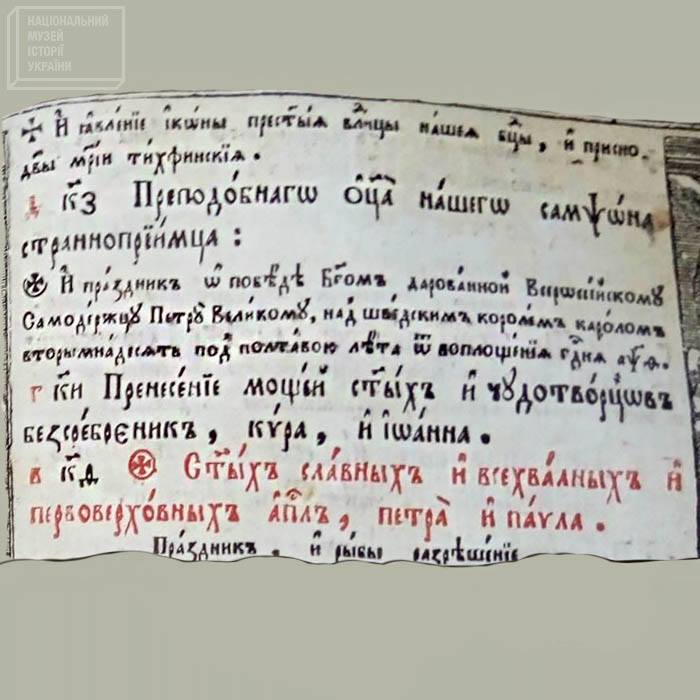 НАЦІОНАЛЬНИЙ
МУЗЕЙ
ІСТОРІЇ
УКРАЇНИ
И҆ ꙗ҆вле́нїе і҆кѡ́ны прест҃ы́ѧ влⷣцы на́шеѧ бцⷣы, и҆ присно
дв҃ы мр҃і́и ти́хфинскїѧ.
к҃з Преподо́бнагѡ ѻ҆ц҃а̀ на́шегѡ самѱѡ́на
страннопрїи́мца:
И҆ пра́здникъ ѡ҆ побѣ́дѣ Бг҃омъ дарова́нной Всерѡссі́йскому
Самоде́ржцу Петрꙋ̀ Вели́кому, над шве́дскимъ короле́мъ ка́роломъ
вторы́мна́десять под̾ полта́вою лѣ́та ѿ воплоще́нїѧ гдⷭ҇нѧ ҂аѱѳ.
г к҃и Пренесе́нїе моще́й ст҃ы́хъ и҆ чꙋдотво́рцѡвъ
безсре́брєникъ, кѵ́ра, и҆ і҆ѡа́нна.
в к҃ѳ Ст҃ы́хъ сла́вныхъ и҆ всехва́лныхъ и҆
первоверхо́вныхъ а҆пⷭ҇лъ, петра̀ и҆ па́ѵла.
Пра́здникъ. и҆ ры́бы разрѣше́нїе